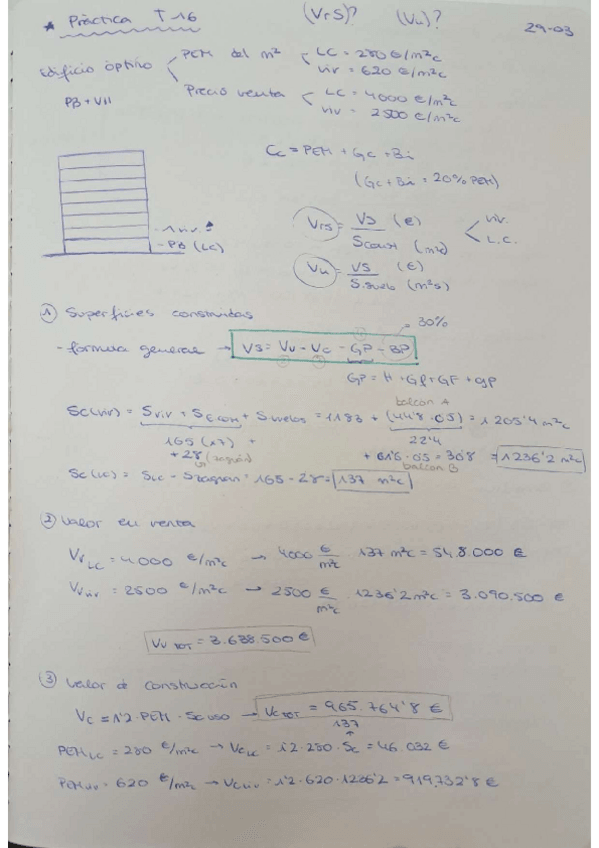 * Práctica T 16 (VrS)? (Vu)? 29-03
Edificio óptimo PEM del m² LC = 280 €/m²c
viv = 620 €/m²c
PB + VII Precio venta LC = 4000 €/m²c
viv = 2500 €/m²c
Cc = PEM + Gc + Bi
(Gc + Bi = 20% PEM)
- 1 viv.
- PB (LC)
Vrs = VS (€) / Sconst (m²c) viv. L.C.
Vu = VS (€) / S.suelo (m²s)
① Superficies construidas
- fórmula general → VS = Vv - Vc - GP - BP = 30%
GP = H + Gl + GF + gp
balcón A
Sc(viv) = Sviv + SEcom + Svuelos = 1183 + (44'8 · 0'5) = 1205'4 m²c
165 (x7) + 22'4
+ 28 (zaguán) + 61'6 · 0'5 = 30'8 = 1236'2 m²c
balcón B
Sc(LC) = SLC - Szaguan = 165 - 28 = 137 m²c
② Valor en venta
Vv LC = 4000 €/m²c → 4000 €/m²c · 137 m²c = 548.000 €
Vv viv = 2500 €/m²c → 2500 €/m²c · 1236'2 m²c = 3.090.500 €
Vv TOT = 3.638.500 €
③ Valor de construcción
Vc = 1'2 · PEM · Sc uso → Vc TOT = 965.764'8 €
137
PEM LC = 280 €/m²c → Vc LC = 1'2 · 280 · Sc = 46.032 €
PEM viv = 620 €/m²c → Vc viv = 1'2 · 620 · 1236'2 = 919.732'8 €